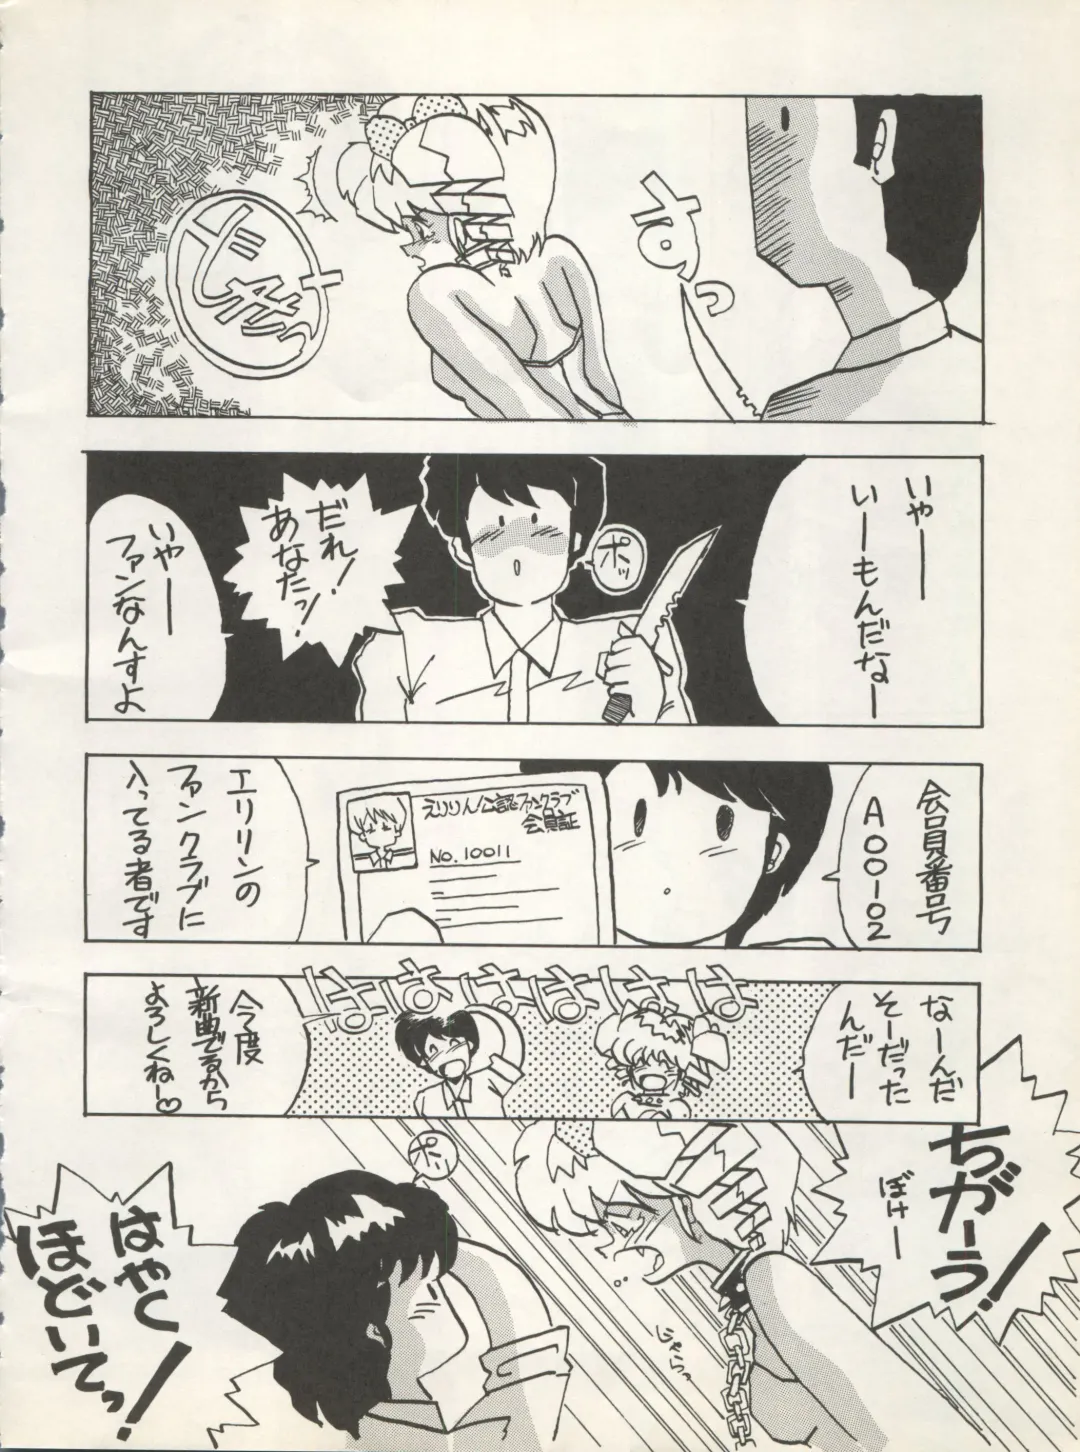 すっ
どきっ
いやー
いーもんだなー
ポッ
だれ!
あなたっ!
いやー
ファンなんすよ
会員番号
A00-02
えりりん公認ファンクラブ
会員証
No.10011
エリリンの
ファンクラブに
入ってる者です
なーんだ
そーだった
んだー
ははははははは
今度
新曲でるから
よろしくねー♡
ちがーう!
ぼけー
じゃらっ
ポッ
はやく
ほどいてっ!